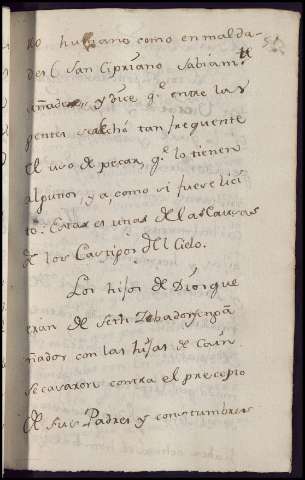 no humano como en malda-
des C San Cipriano Sabiam.te
añade, y dice q.e entre las
gentes se à echo tan frequente
el uso de pecar, q.e lo tienen
algunos, ya, como si fuere lici
to. Estas es unas de las Causas
de los Castigos del Cielo.
Los hijos de Dios que
eran de Seth
ñados con las hijas de Caín.
se casaron contra el precepto
de sus Padres y constumbres